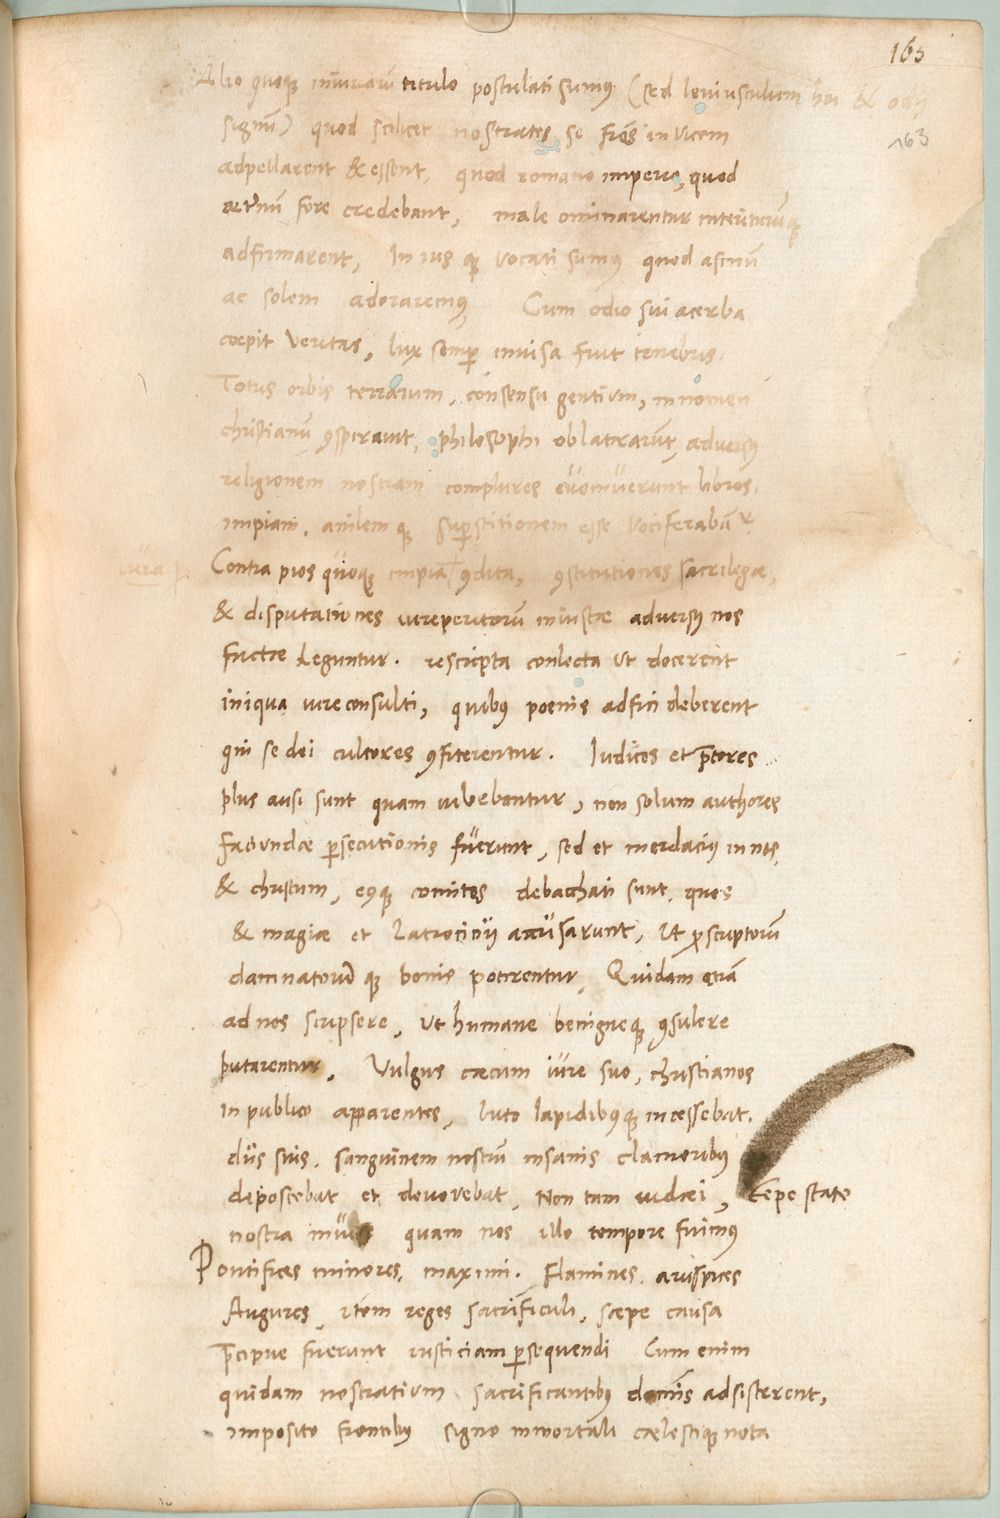 163
163
Alio quoque iniuriarū titulo postulati sumus (sed leuiusculum hoi & odij
signū) quod scilicet nostrates se frēs inuicem
adpellarent & essent, quod romano imperio, quod
ætʼnū fore credebant, male ominarentur interiturūq;
adfirmarent, In ius q; vocati sumus quod asinū
ac solem adoraremus, Cum odio sui acerba
coepit Veritas, lux semp inuisa fuit tenebris.
Totus orbis terrarum, consensu gentium, in nomen
christianū ꝯspirauit, philosophi oblatrarūt, adversus
religionem nostram complures evomverunt libros,
impiam, anilem q; supstitionem esse vociferabātʳ
Contra pios quoque impia ꝯdita, ꝯstitutiones sacrilegæ,
iura
& disputationes iureperitorū iniustæ adversus nos
factæ leguntur. rescripta conlecta ut docerent
iniqua iureconsulti, quibus poenis adfici deberent
qui se dei cultores ꝯfiterentur. Iudices et p̄tores
plus ausi sunt quam iubebantur, non solum authores
faciundæ psecutionis fuerunt, sed et mordacius in nos,
& christum, eiusq; comites debacchati sunt, quos
& magiæ et Latrocinij accusarunt, Ut pscriptorū
damnatorū q; bonis potirentur, Quidam etiā
ad nos scripsere, ut humane benigneq; ꝯsulere
putarentur. Vulgus cæcum iure suo, christianos
in publico apparentes, luto lapidibusq; incessebat,
diis suis. sanguinem nostrū insanis clamoribus
deposcebat et devorebat, Non tam iudæi, tempestate
nostra inuisi quam nos illo tempore fuimus
Pontifices minores, maximi. Flamines, aruspices
Augures, item reges sacrificuli, sæpe causa
p̄cipue fuerunt iusticiam psequendi Cum enim
quidam nostratium sacrificantibus dominis adsisterent,
imposito frontibus signo inmortali cælestiq; nota